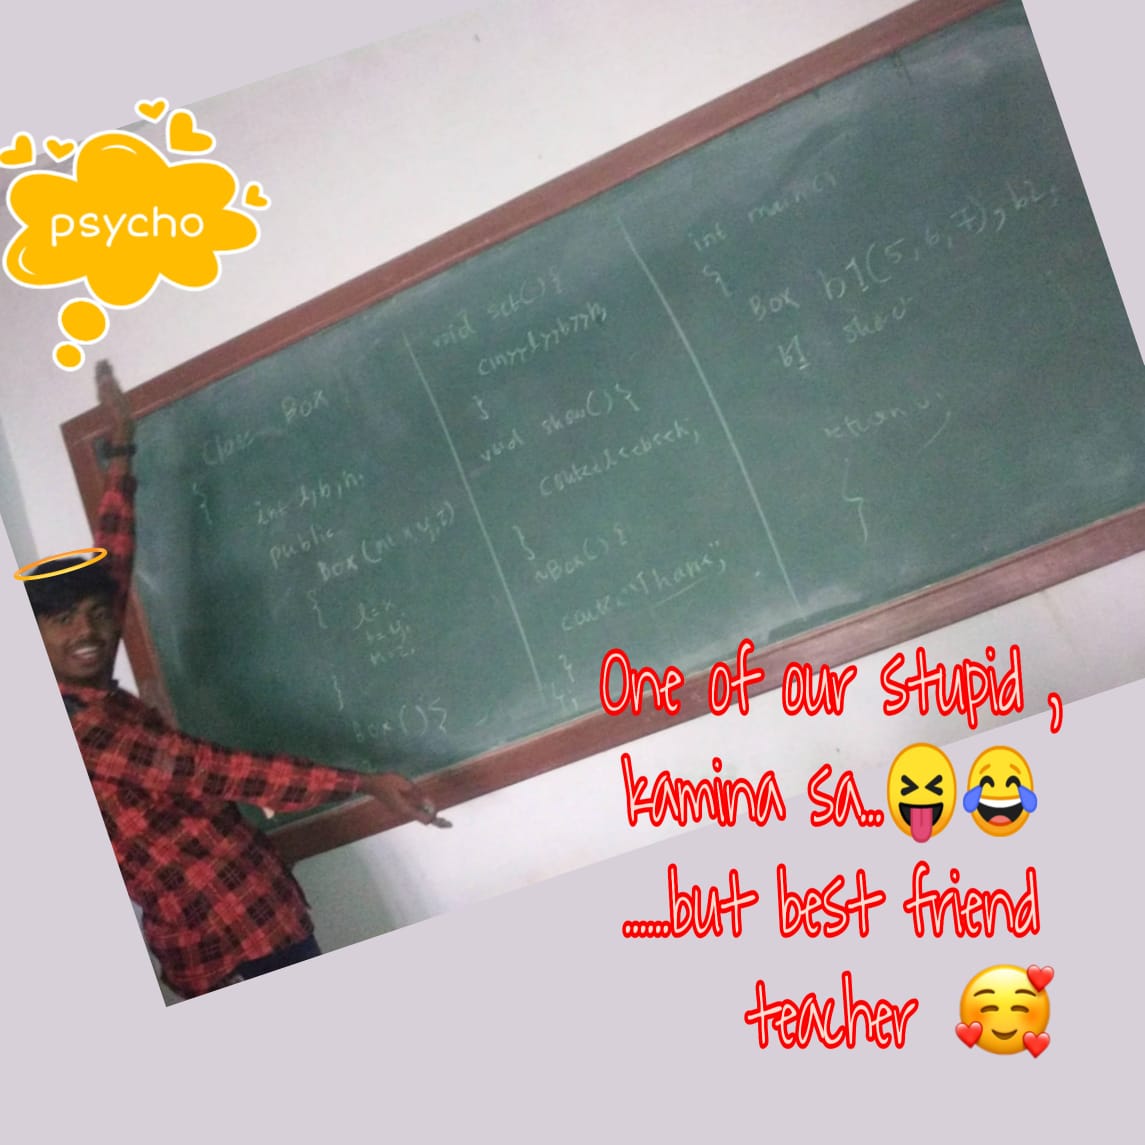 psycho
class Box
{
int l,b,h;
public
Box(int x,y,z)
{
l=x
b=y;
h=z;
}
Box(){
void set(){
cin>>l>>b>>h;
}
void show(){
cout<<l<<b<<h;
}
~Box(){
cout<<"Thanx";
}
};
int main()
{
Box b1(5,6,7),b2;
b1 show
return 0;
}
One of our stupid ,
kamina sa...😝😂
......but best friend
teacher 🥰